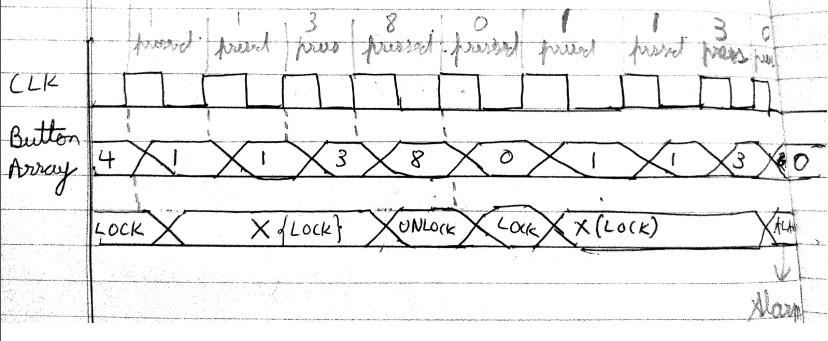 1 1 3 8 0 1 1 3 0
pressed pressed press pressed pressed pressed pressed press
CLK
Button Array 4 1 1 3 8 0 1 1 3 0
LOCK X {LOCK} UNLOCK LOCK X (LOCK)
Alarm